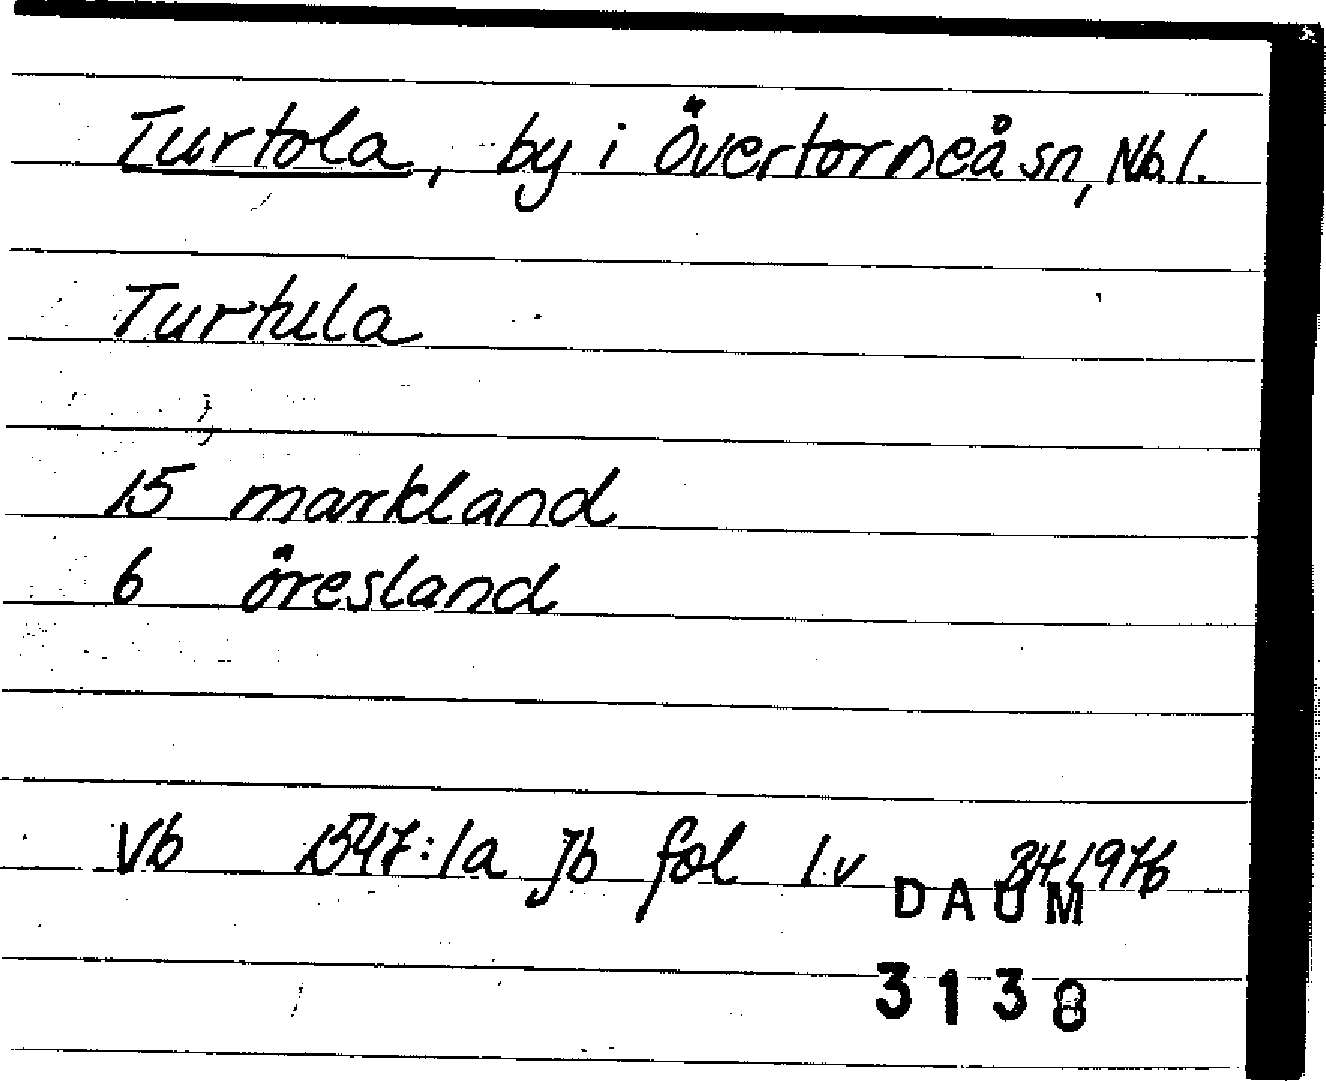 Turtola, by i Övertorneå sn, Nb. l.
Turtula
15 markland
6 öresland
Vb 1547:1a Jb fol 1 v 1976
DAUM
3138